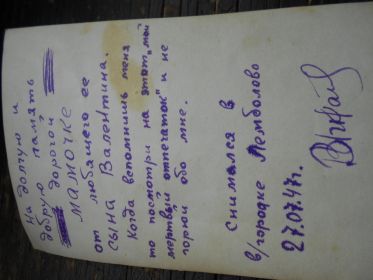 На долгую и
добрую память
дорогой
мамочке
от любящего ее
сына Валентина.
Когда вспомнишь меня
то посмотри на этот „мой
мертвый отпечаток" и не
горюй обо мне.
снимался в
в/городке Лемболово
27.07.47г.